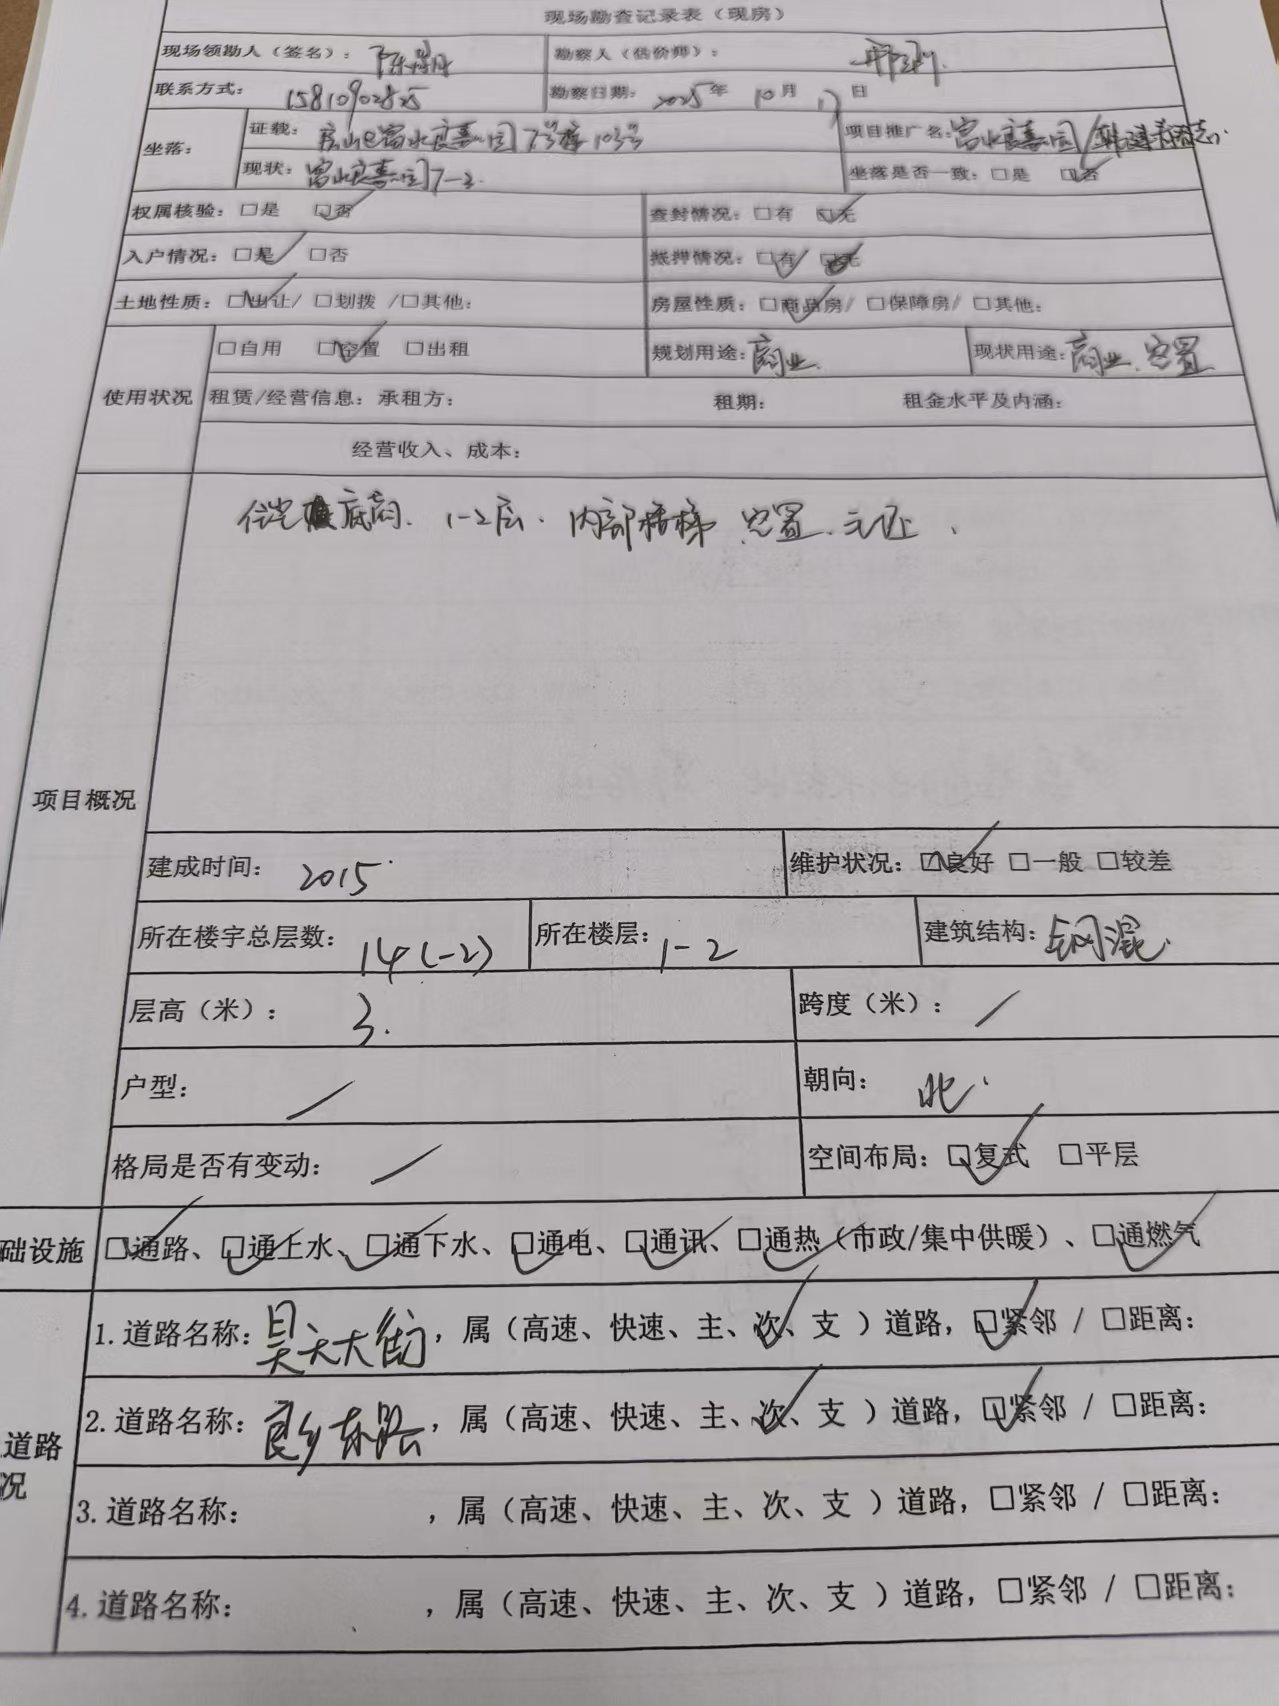 现场勘查记录表（现房）
现场领勘人（签名）： 勘察人（估价师）：
联系方式： 15810902825 勘察日期： 2025年 10月 17日
坐落： 证载： 7号楼103号 项目推广名：
现状： 7-3. 坐落是否一致：□是 □否
权属核验：□是 □否 查封情况：□有 □无
入户情况：□是 □否 抵押情况：□有 □无
土地性质：□出让/ □划拨 /□其他： 房屋性质：□商品房/ □保障房/ □其他：
使用状况 □自用 □空置 □出租 规划用途：商业. 现状用途：商业、空置
租赁/经营信息：承租方： 租期： 租金水平及内涵：
经营收入、成本：
项目概况
住宅底商、1-2层. 内部楼梯 空置、无证.
建成时间： 2015 维护状况：□良好 □一般 □较差
所在楼宇总层数： 14(-2) 所在楼层：1-2 建筑结构：钢混
层高（米）： 3. 跨度（米）： /
户型： / 朝向： 北.
格局是否有变动： / 空间布局：□复式 □平层
础设施 □通路、□通上水、□通下水、□通电、□通讯、□通热（市政/集中供暖）、□通燃气
道路
况
1.道路名称：昊天大街，属（高速、快速、主、次、支 ）道路，□紧邻 / □距离：
2.道路名称：良乡东路，属（高速、快速、主、次、支 ）道路，□紧邻 / □距离：
3.道路名称： ，属（高速、快速、主、次、支 ）道路，□紧邻 / □距离：
4.道路名称： ，属（高速、快速、主、次、支 ）道路，□紧邻 / □距离：